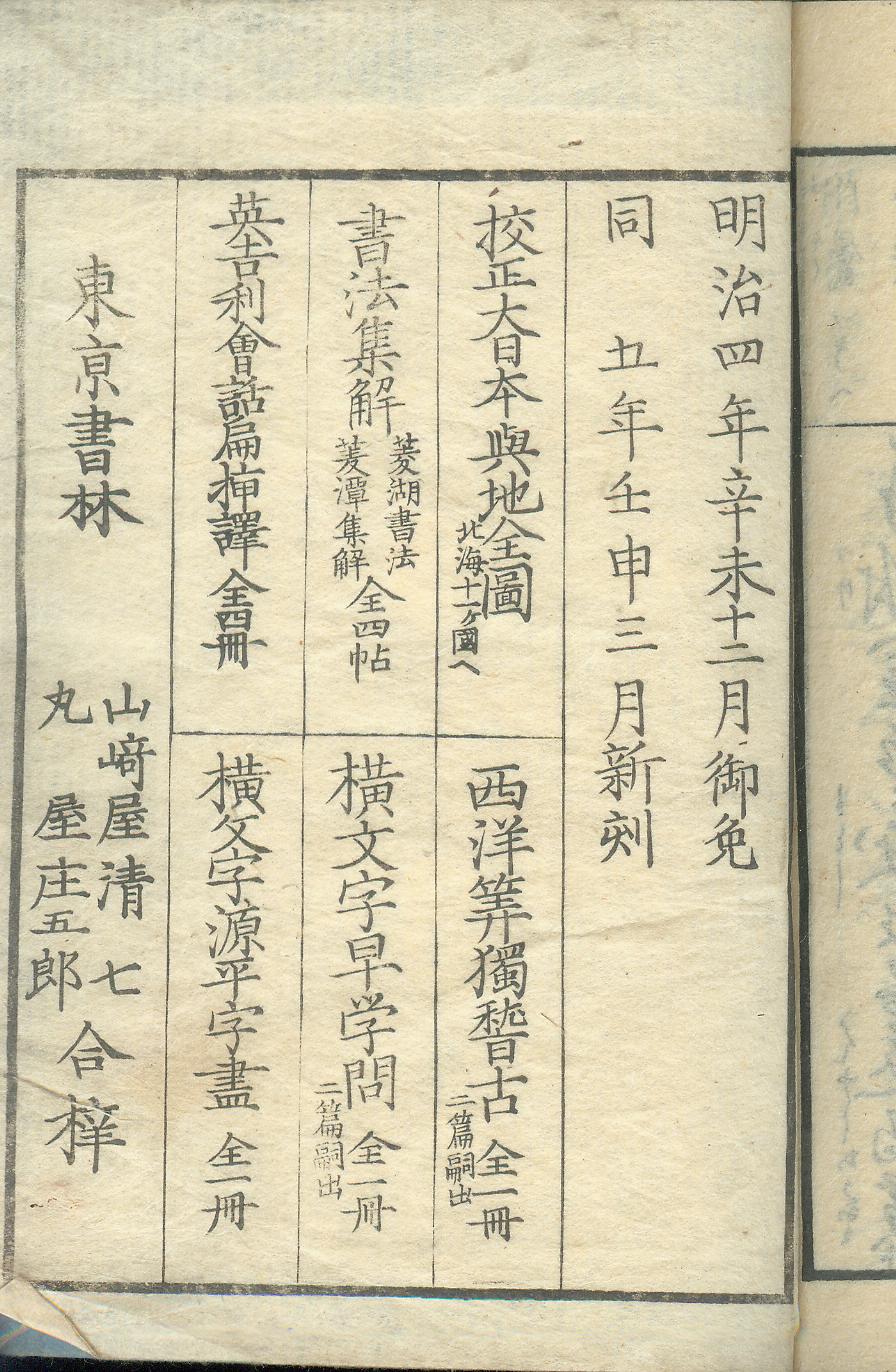 明治四年辛未十二月御免
同　五年壬申三月新刻
校正大日本輿地全圖
北海十一ケ國入
西洋筭獨稽古　全一冊
二篇嗣出
書法集解
菱湖書法
菱潭集解
全四帖
橫文字早学問　全一冊
二篇嗣出
英吉利會話扁挿譯　全四冊
橫文字源平字盡　全一冊
東京書林
山﨑屋清七
丸屋庄五郎
合梓